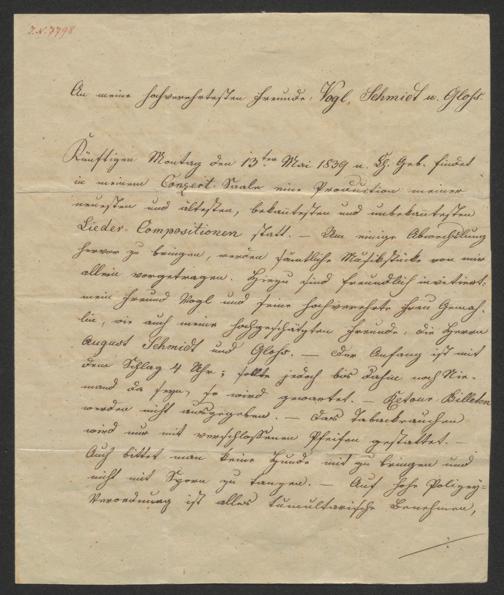 I.N. 7798
An meine hochverehrtesten Freunde: Vogl, Schmidt u. Glohs.
Künftigen Montag den 13ten Mai 1839 n. Ch. Geb. findet
in meinem Conzert-Saale eine Production meiner
neuesten und ältesten, bekantesten und unbekantesten
Lieder-Compositionen statt. — Um einige Abwechslung
hervor zu bringen, werden sämtliche Musikstücke von mir
allein vorgetragen. Hiezu sind freundlich invitirt:
mein Freund Vogl und seine hochverehrte Frau Gemah-
lin, wie auch meine hochgeschätzten Freunde, die Herrn
August Schmidt und Glohs. — Der Anfang ist mit
dem Schlag 4 Uhr; sollte jedoch bis dahin noch Nie-
mand da seyn, so wird gewartet. — Retour-Billeten
werden nicht ausgegeben. — Das Tabakrauchen
wird nur mit verschlossenen Pfeifen gestattet. —
Auch bittet man keine Hunde mit zu bringen und
nicht mit Sporn zu tanzen. — Auf hohe Polizey-
Verordnung ist alles tumultarische Benehmen,